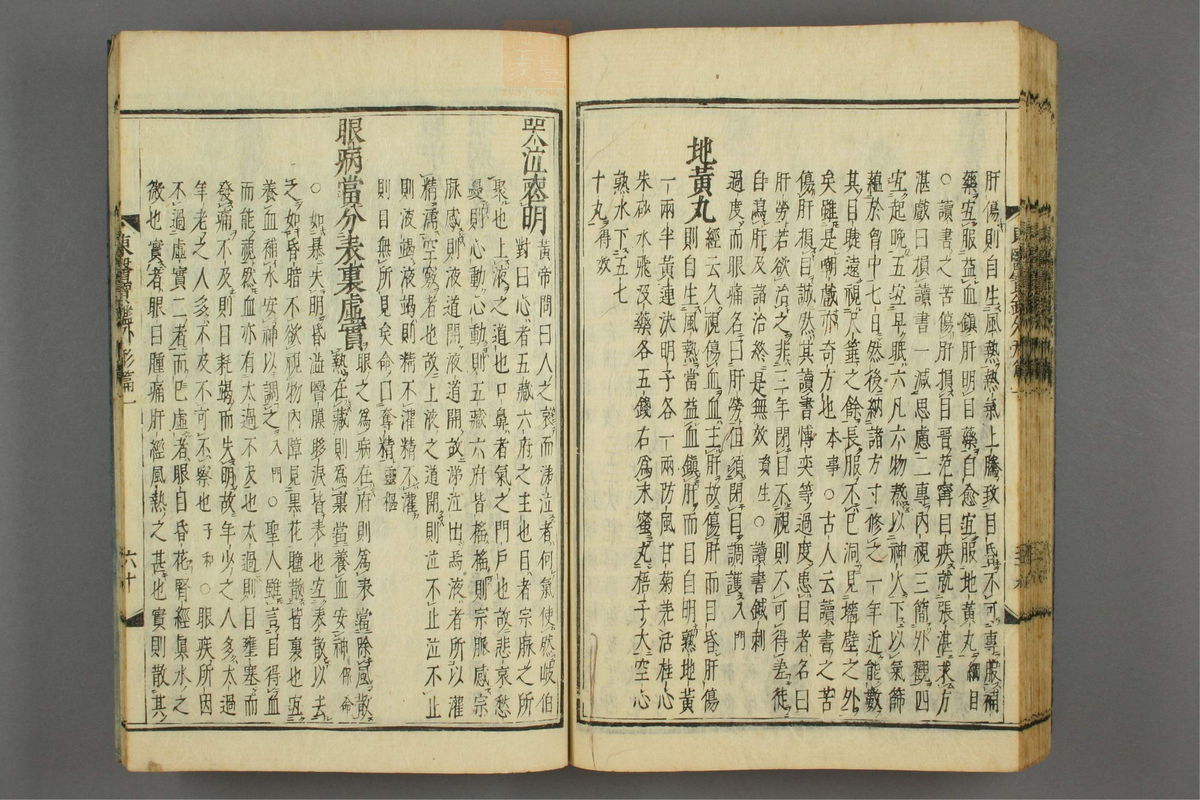 肝傷則自生風熱熱氣上騰致目昏不可專服補
藥宜服益血鎭肝明目藥自愈宜服地黃丸綱目
○讀書之苦傷肝損目晋范甯目疾就張湛求方
湛戱曰損讀書一減思慮二專內視三簡外觀四
宜起晩五宜早眠六凡六物熬以神火下以氣篩
蘊於胷中七日然後納諸方寸修之一年近能數
其目睫遠視尺箠之餘長服不已洞見墻壁之外
矣雖是嘲戱亦奇方也本事○古人云讀書之苦
傷肝損目誠然其讀書博奕等過度患目者名曰
肝勞若欲治之非三年閉目不視則不可得差徒
自瀉肝及諸治終是無效資生○讀書鍼刺
過度而眼痛名曰肝勞但須閉目調護入門
地黃丸
經云久視傷血血主肝故傷肝而目昏肝傷
則自生風熱當益血鎭肝而目自明熟地黃
一兩半黃連決明子各一兩防風甘菊羌活桂心
朱砂水飛沒藥各五錢右爲末蜜丸梧子大空心
熟水下五七
十丸得效
哭泣喪明
黃帝問曰人之哀而涕泣者何氣使然岐伯
對曰心者五藏六府之主也目者宗脉之所
聚也上液之道也口鼻者氣之門戶也故悲哀愁
憂則心動心動則五藏六府皆搖搖則宗脈感宗
脉感則液道開液道開故涕泣出焉液者所以灌
精濡空竅者也故上液之道開則泣不止泣不止
則液竭液竭則精不灌精不灌
則目無所見矣命曰奪精靈樞
眼病當分表裏虛實
眼之爲病在府則爲表當除風散
熱在藏則爲裏當養血安神保命
○如暴失明昏澁瞖膜眵淚皆表也宜表散以去
之如昏暗不欲視物內障見黑花瞳散皆裏也宜
養血補水安神以調之入門○聖人雖言目得血
而能視然血亦有太過不及也太過則目壅塞而
發痛不及則目耗竭而失明故年少之人多太過
年老之人多不及不可不察也子和○眼疾所因
不過虛實二者而已虛者眼目昏花腎經眞水之
微也實者眼目腫痛肝經風熱之甚也實則散其
東醫寶鑑外形篇一
六十